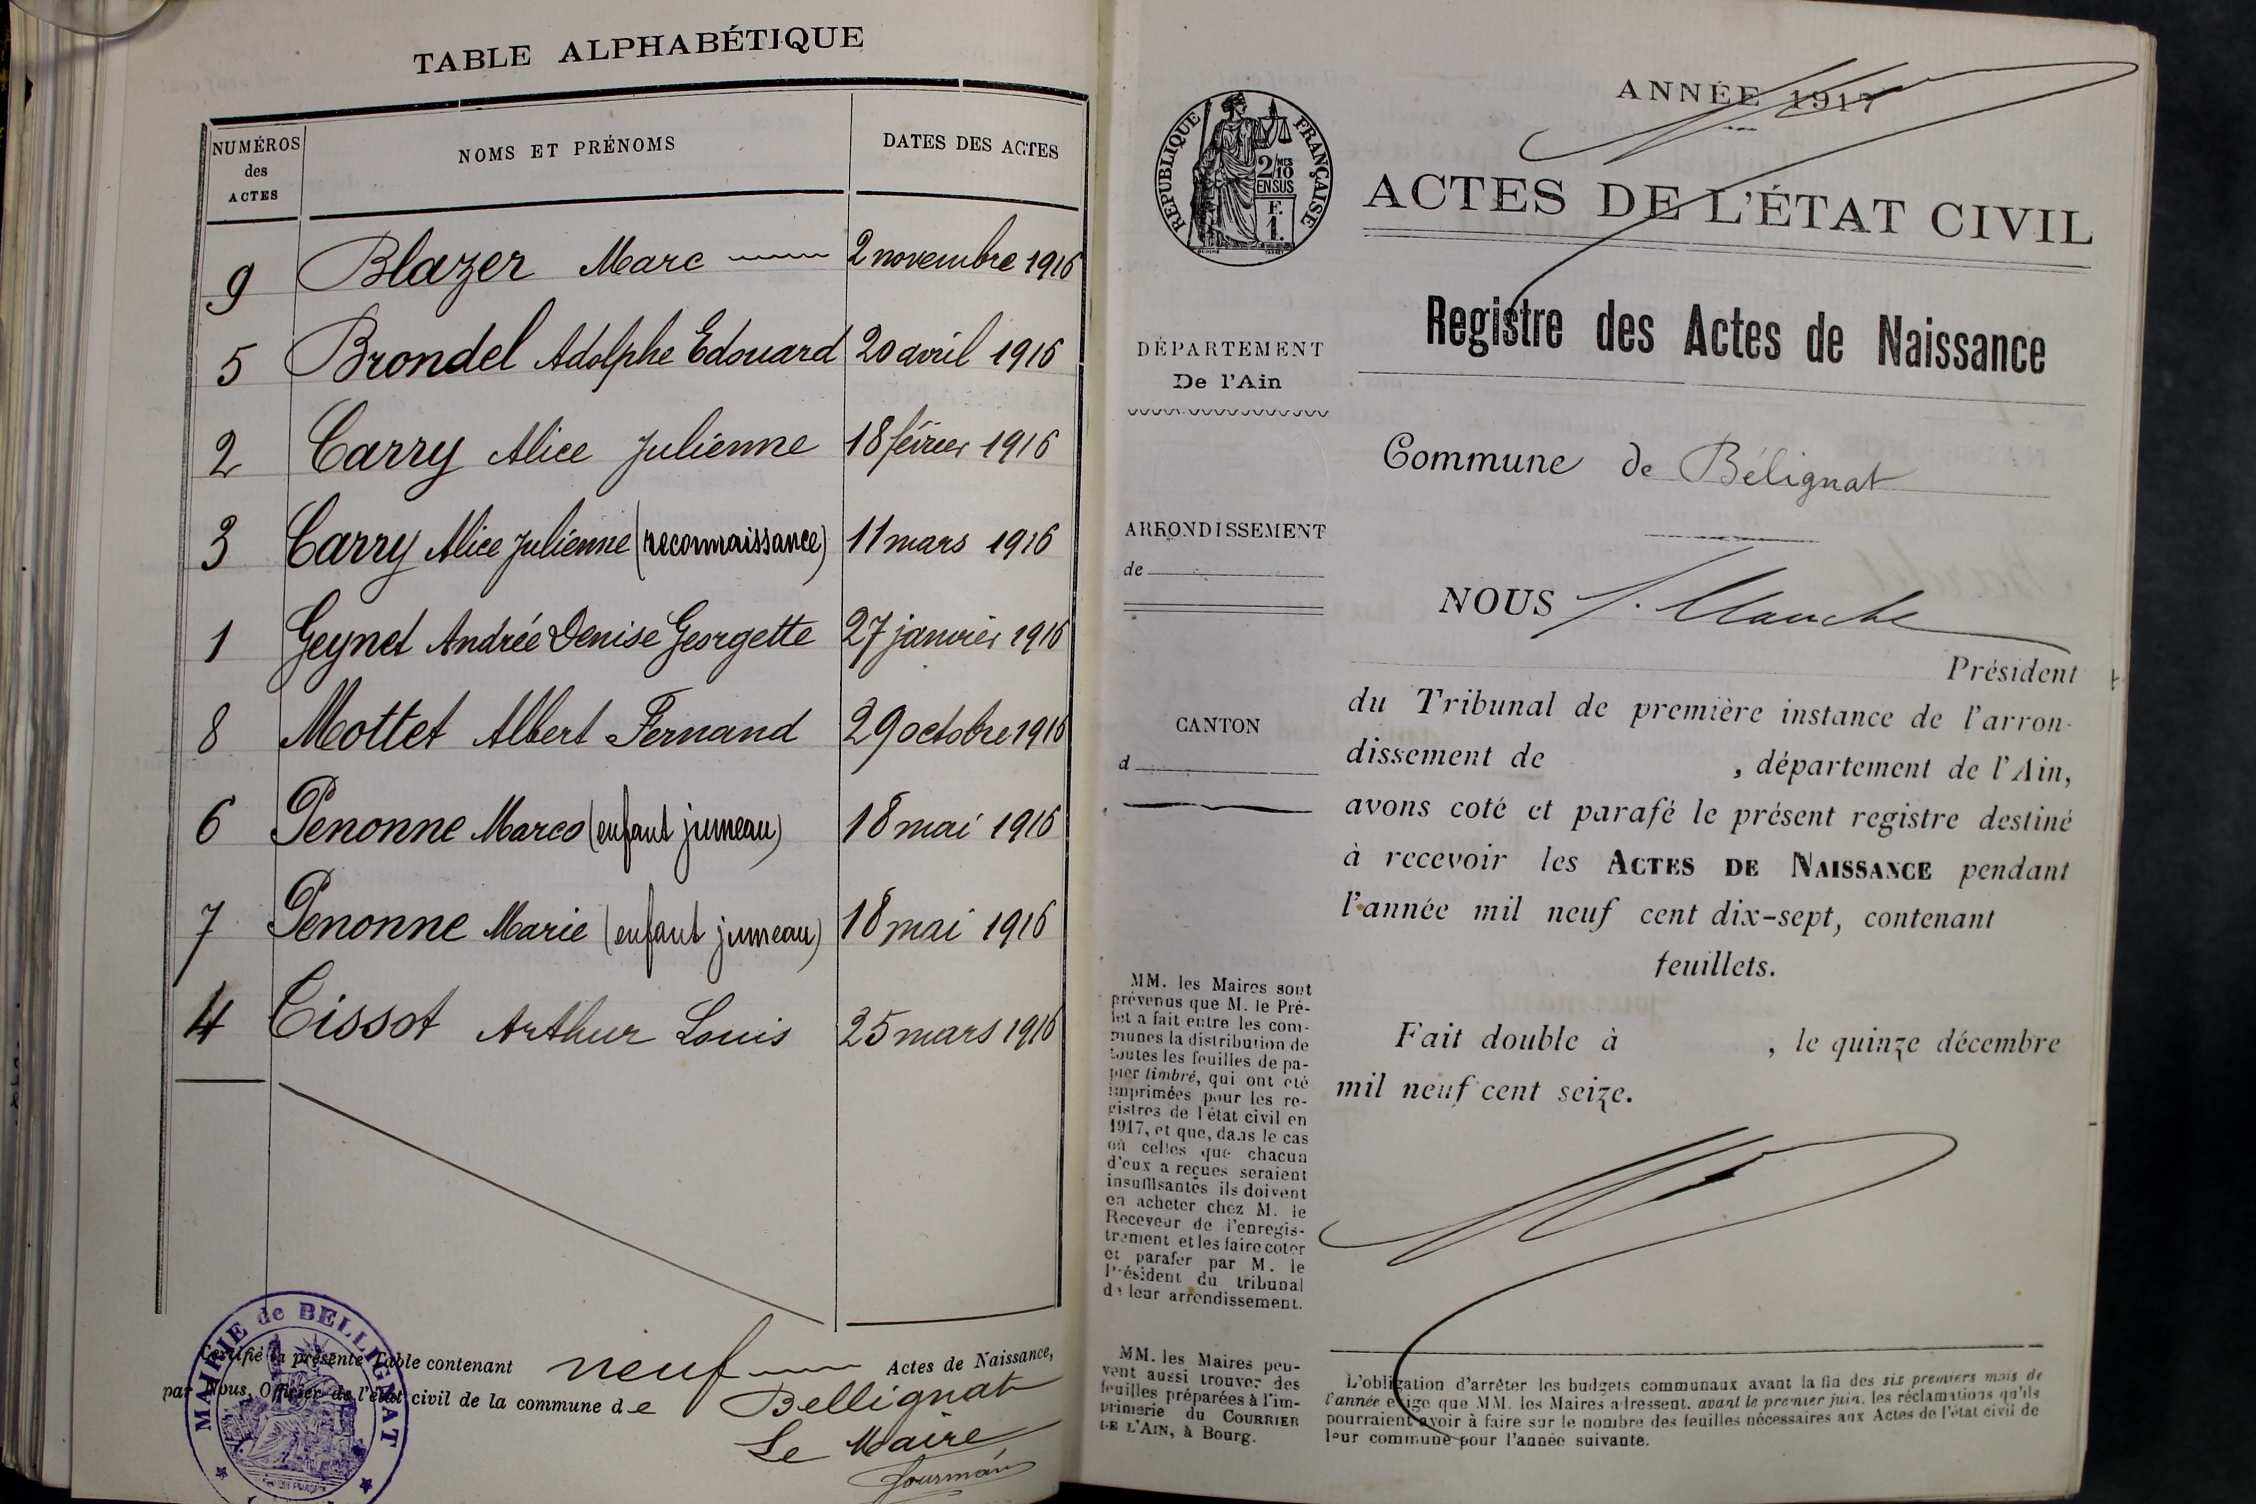 TABLE ALPHABÉTIQUE
NUMÉROS des ACTES | NOMS ET PRÉNOMS | DATES DES ACTES
9 Blazer Marc 2 novembre 1916
5 Brondel Adolphe Edouard 20 avril 1916
2 Carry Alice Julienne 18 février 1916
3 Carry Alice Julienne (reconnaissance) 11 mars 1916
1 Geynet Andrée Denise Georgette 27 janvier 1916
8 Mottet Albert Fernand 29 octobre 1916
6 Penonne Marco (enfant jumeau) 18 mai 1916
7 Penonne Marie (enfant jumeau) 18 mai 1916
4 Tissot Arthur Louis 25 mars 1916
Certifié la présente Table contenant neuf Actes de Naissance,
par Nous, Officier de l'état civil de la commune de Bellignat
Le Maire
Gourmand
MAIRIE de BELLIGNAT
ANNÉE 1917
RÉPUBLIQUE FRANÇAISE
2/10 MES
EN SUS
F.
1.
ACTES DE L'ÉTAT CIVIL
Registre des Actes de Naissance
DÉPARTEMENT
De l'Ain
Commune de Bélignat
ARRONDISSEMENT
de
NOUS
Président
CANTON
d
du Tribunal de première instance de l'arron-
dissement de , département de l'Ain,
avons coté et parafé le présent registre destiné
à recevoir les ACTES DE NAISSANCE pendant
l'année mil neuf cent dix-sept, contenant
feuillets.
Fait double à , le quinze décembre
mil neuf cent seize.
MM. les Maires sont
prévenus que M. le Pré-
fet a fait entre les com-
munes la distribution de
toutes les feuilles de pa-
pier timbré, qui ont été
imprimées pour les re-
gistres de l'état civil en
1917, et que, dans le cas
où celles que chacun
d'eux a reçues seraient
insuffisantes ils doivent
en acheter chez M. le
Receveur de l'enregis-
trement et les faire coter
et parafer par M. le
Président du tribunal
de leur arrondissement.
MM. les Maires peu-
vent aussi trouver des
feuilles préparées à l'im-
primerie du COURRIER
DE L'AIN, à Bourg.
L'obligation d'arrêter les budgets communaux avant la fin des six premiers mois de
l'année exige que MM. les Maires adressent, avant le premier juin, les réclamations qu'ils
pourraient avoir à faire sur le nombre des feuilles nécessaires aux Actes de l'état civil de
leur commune pour l'année suivante.